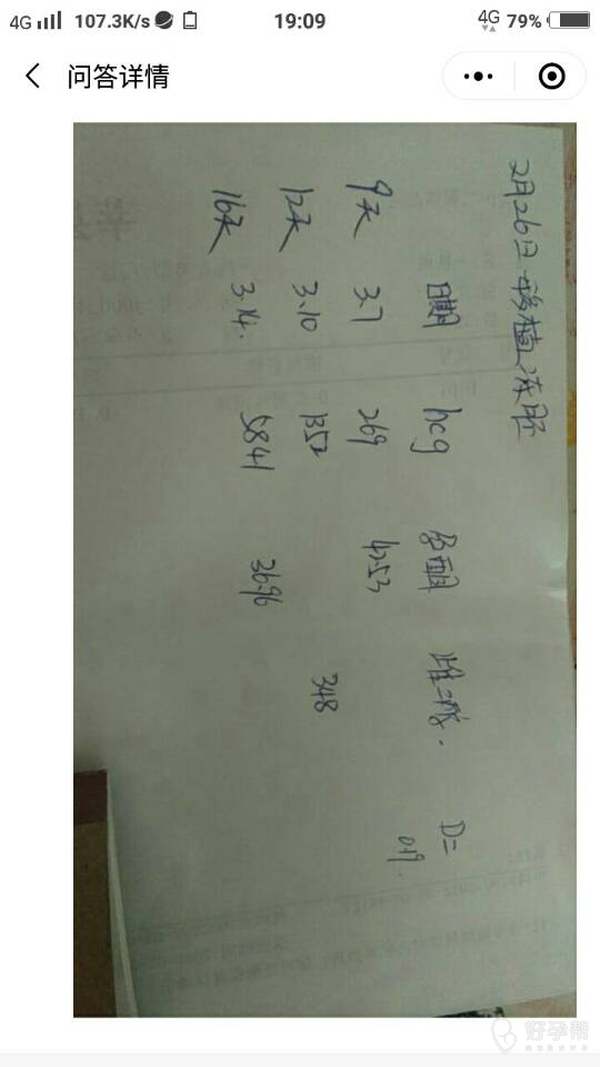 4G 107.3K/s 19:09 4G 79%
问答详情
2月26日移植冻胚
日期 hcg 孕酮 雌二醇. D=
9天 3.7 269 42.53 0.19.
12天 3.10 1352 348
16天 3.14. 5841 36.96
好孕帮